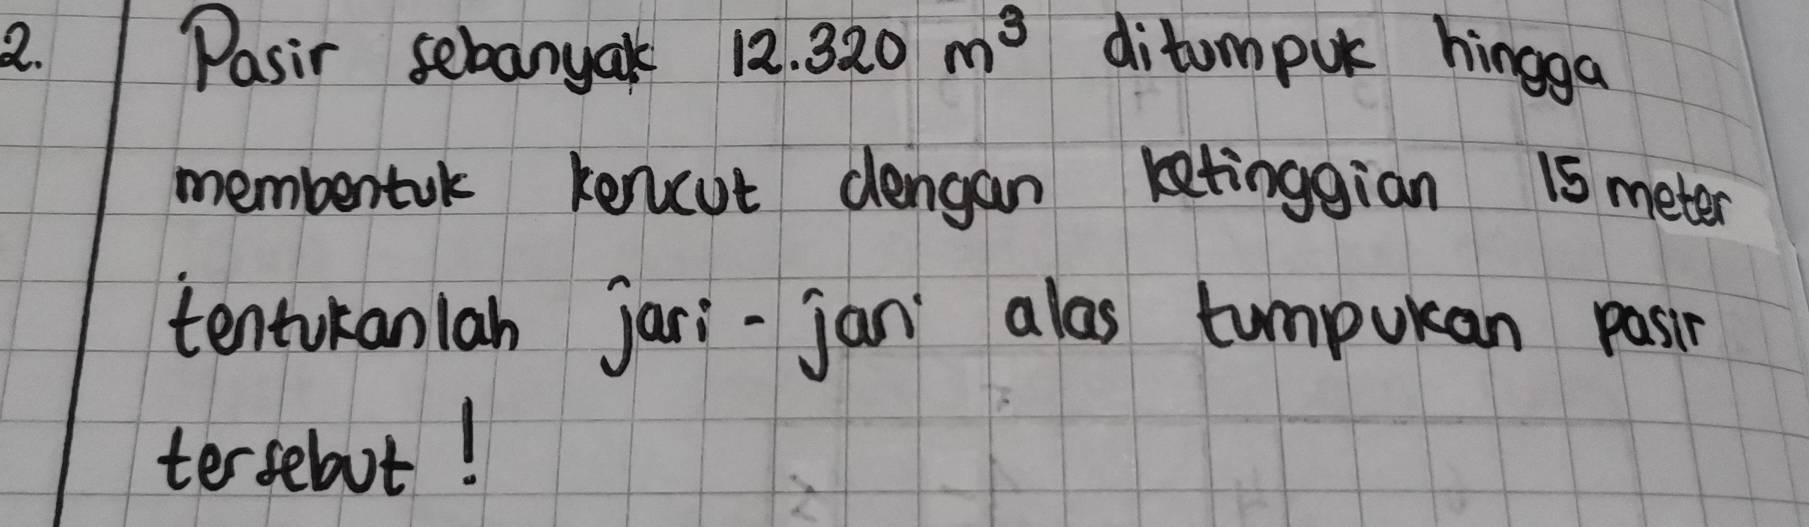 2. Pasir sebanyak 12.320 m³ ditumpuk hingga
membentuk kerucut dengan ketinggian 15 meter
tentukanlah jari-jari alas tumpukan pasir
tersebut!